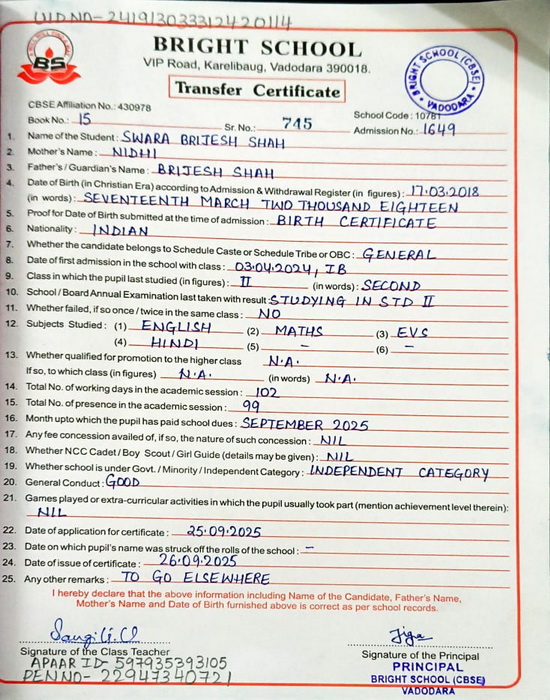 UID NO- 241913033312420114
BS
BRIGHT SCHOOL
VIP Road, Karelibaug, Vadodara 390018.
Transfer Certificate
BRIGHT SCHOOL (CBSE)
VADODARA
CBSE Affiliation No.: 430978
School Code : 10781
Book No.: 15 Sr. No.: 745 Admission No.: 1649
1. Name of the Student : SWARA BRIJESH SHAH
2. Mother's Name : NIDHI
3. Father's / Guardian's Name : BRIJESH SHAH
4. Date of Birth (in Christian Era) according to Admission & Withdrawal Register (in figures) : 17.03.2018
(in words) : SEVENTEENTH MARCH TWO THOUSAND EIGHTEEN
5. Proof for Date of Birth submitted at the time of admission : BIRTH CERTIFICATE
6. Nationality : INDIAN
7. Whether the candidate belongs to Schedule Caste or Schedule Tribe or OBC : GENERAL
8. Date of first admission in the school with class : 03.04.2024, IB
9. Class in which the pupil last studied (in figures) : II (in words) : SECOND
10. School / Board Annual Examination last taken with result : STUDYING IN STD II
11. Whether failed, if so once / twice in the same class : NO
12. Subjects Studied : (1) ENGLISH (2) MATHS (3) EVS
(4) HINDI (5) - (6) -
13. Whether qualified for promotion to the higher class N.A.
If so, to which class (in figures) N.A. (in words) N.A.
14. Total No. of working days in the academic session : 102
15. Total No. of presence in the academic session : 99
16. Month upto which the pupil has paid school dues : SEPTEMBER 2025
17. Any fee concession availed of, if so, the nature of such concession : NIL
18. Whether NCC Cadet / Boy Scout / Girl Guide (details may be given) : NIL
19. Whether school is under Govt. / Minority / Independent Category : INDEPENDENT CATEGORY
20. General Conduct : GOOD
21. Games played or extra-curricular activities in which the pupil usually took part (mention achievement level therein):
NIL
22. Date of application for certificate : 25.09.2025
23. Date on which pupil's name was struck off the rolls of the school : -
24. Date of issue of certificate : 26.09.2025
25. Any other remarks : TO GO ELSEWHERE
I hereby declare that the above information including Name of the Candidate, Father's Name,
Mother's Name and Date of Birth furnished above is correct as per school records.
Signature of the Class Teacher
Signature of the Principal
APAAR ID- 597935393105
PEN NO- 22947340721
PRINCIPAL
BRIGHT SCHOOL (CBSE)
VADODARA